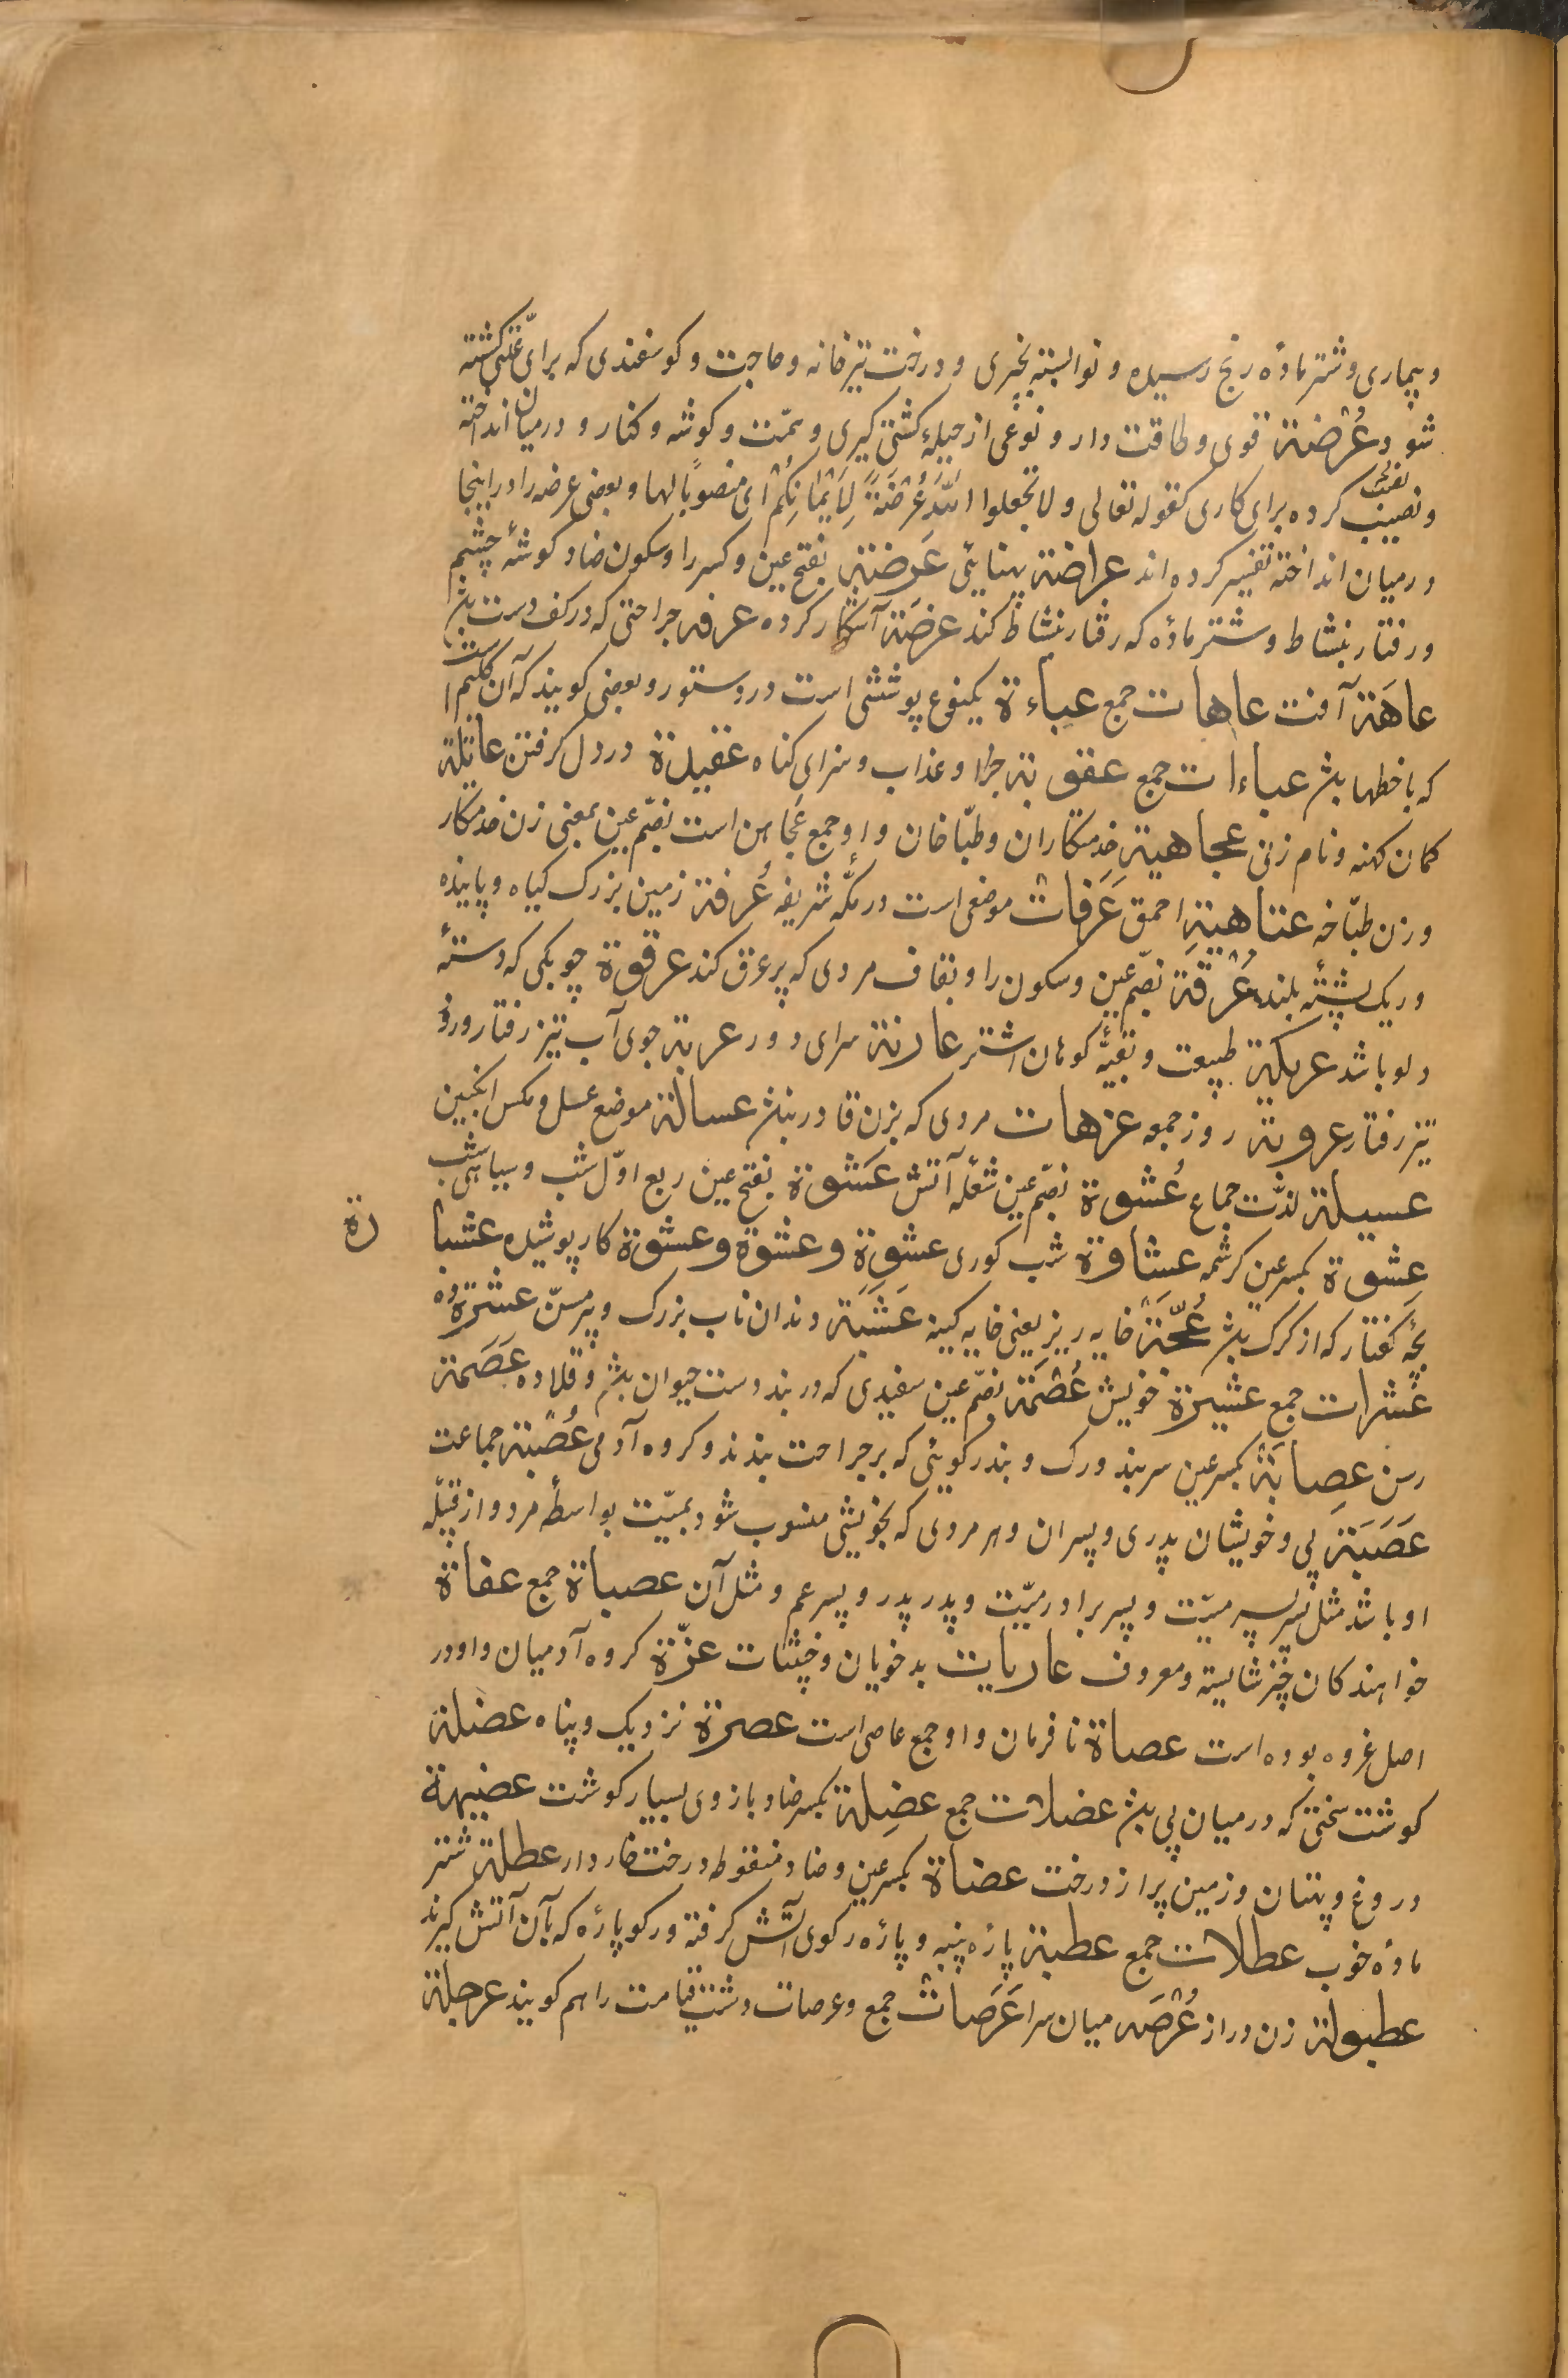 و بیماری و شتر ماده رنج رسیده و نوالبته بچیزی و درخت تیزخانه و حاجت و کوسفندی که برای علتی کشته
شود و عُرْضَة قوی و طاقت دار و نوعی از حیلهٔ کشتی کیری و سمت و کوشه و کنار و در میان انداخته
و نصیب کرده برای کاری کقوله تعالی و لا تجعلوا اللّٰه عُرْضَةً لِاَیْمَانِکُمْ ای منصوباً لها و بعضی عرضه را در اینجا
در میان انداخته تفسیر کرده اند عراضة پهنایی عَرِضَة بفتح عین و کسر را و سکون ضاد کوشهٔ چشم
و رفتار بنشاط و شتر ماده که رفتار بنشاط کند عرضَة آشکار کرده عرفه جراحتی که در کف دست بشد
عاهَة آفت عاهات جمع عباءة یکنوع پوششی است در دستور و بعضی کویند که آن کلیم است
که با خطها بشد عباءات جمع عقوبة جزا و عذاب و سزای کناه عقیدة در دل کرفتن عاتکة
کمان کهنه و نام زنی عجاهیة خدمتکاران و طبّاخان و او جمع عُجاهن است بضمّ عین بمعنی زن خدمتکار
و زن طبّاخه عتاهیة احمق عَرَفات موضعی است در مکّه شریفه عُرفة زمین بزرک کیاه و پاینده
و ریک پشتهٔ بلند عُرْقَة بضمّ عین و سکون را و بقاف مردی که پر عرق کند عرقوة چوبکی که دستهٔ
دلو باشد عریکة طبیعت و بقیهٔ کوهان اشتر عارنة سرای دور عربة جوی آب تیز رفتار و رود
تیز رفتار عروبة روز جمعه عزهات مردی که بزن قادر بنشد عسالة موضع عسل و مکس انکبین
عسیلة لذّت جماع عُشوة بضمّ عین شعلهٔ آتش عَشوة بفتح عین ربع اوّل شب و سیاهی شب
عِشوة بکسر عین کرشمه عشاوة شب کوری عشوة و عشوة و عشوة کار پوشیده عشبا رة
بچهٔ کفتار که از کرک بشد عُجَّة خایه ریز یعنی خایه کینه عَشَبَة دندان ناب بزرک و پیر مسنّ عشرة ده
عشرات جمع عشیرة خویش عُصْمَة بضمّ عین سفیدی که در بند دست حیوان بشد و قلاده عَصَمة
رسن عِصابَة بکسر عین سربند و رک و بند رکویی که بر جراحت بندند و کروه آدمی عُصْبَة جماعت
عَصَبَة پی و خویشان پدری و پسران و هر مردی که بخویشی منسوب شود بمیّت بواسطهٔ مرد و از قبیلهٔ
او باشد مثل پسر پسر میّت و پسر برادر میّت و پدر پدر و پسر عم و مثل آن عصباة جمع عفاة
خواهندکان چیز شایسته و معروف عاریات بدخویان و خبیثات عزّة کروه آدمیان و او در
اصل عزوه بوده است عصاة نافرمان و او جمع عاصی است عصرة نزدیک و پناه عضلة
کوشت سختی که در میان پی بشد عضلات جمع عضِلة بکسر ضاد بازوی بسیار کوشت عضیهة
دروغ و بهتان و زمین پر از درخت عضاة بکسر عین و ضاد منقوطه درخت خاردار عطلة شتر
مادهٔ خوب عطلات جمع عطبة پارهٔ پنبه و پارهٔ رکوی آتش کرفته و رکو پاره که بآن آتش کیرند
عطبولة زن دراز عُرْصَه میان سرا عَرَصات جمع و عرصات دشت قیامت را هم کویند عرجلة